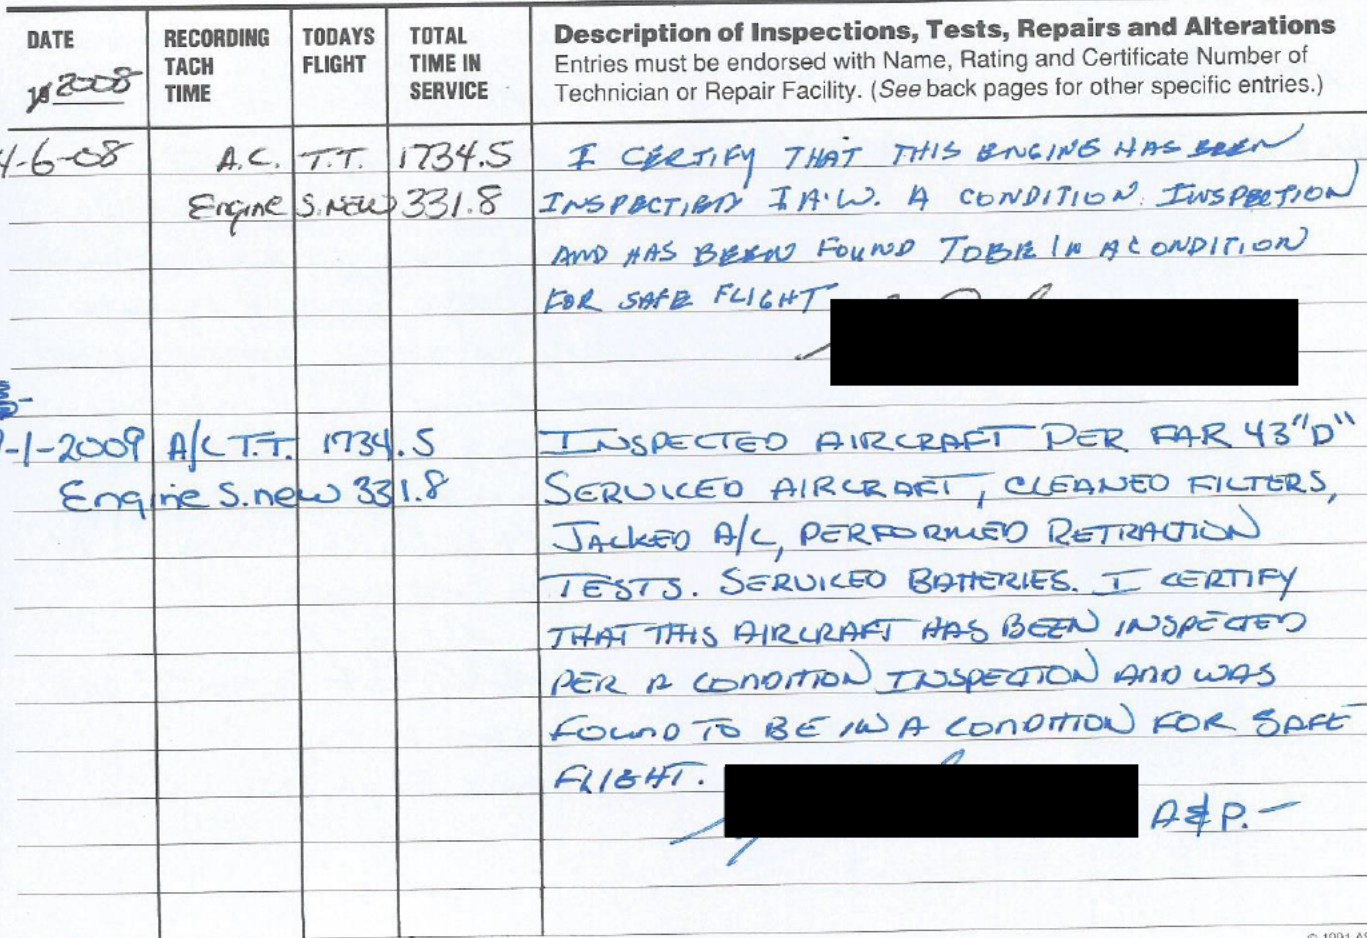 DATE
RECORDING TACH TIME
TODAYS FLIGHT
TOTAL TIME IN SERVICE
Description of Inspections, Tests, Repairs and Alterations
Entries must be endorsed with Name, Rating and Certificate Number of
Technician or Repair Facility. (See back pages for other specific entries.)
2008
4-6-08 A.C. T.T. 1734.5 I CERTIFY THAT THIS ENGINE HAS BEEN
Engine S.NEW 331.8 I.A.W. A CONDITION INSPECTION
AND HAS BEEN FOUND TO BE IN A CONDITION
FOR SAFE FLIGHT
-1-2009 A/C T.T. 1734.5 INSPECTED AIRCRAFT PER FAR 43"D"
Engine S.new 331.8 SERVICED AIRCRAFT, CLEANED FILTERS,
JACKED A/C, PERFORMED RETRACTION
TESTS. SERVICED BATTERIES. I CERTIFY
THAT THIS AIRCRAFT HAS BEEN INSPECTED
PER A CONDITION INSPECTION AND WAS
FOUND TO BE IN A CONDITION FOR SAFE
FLIGHT. A&P.-